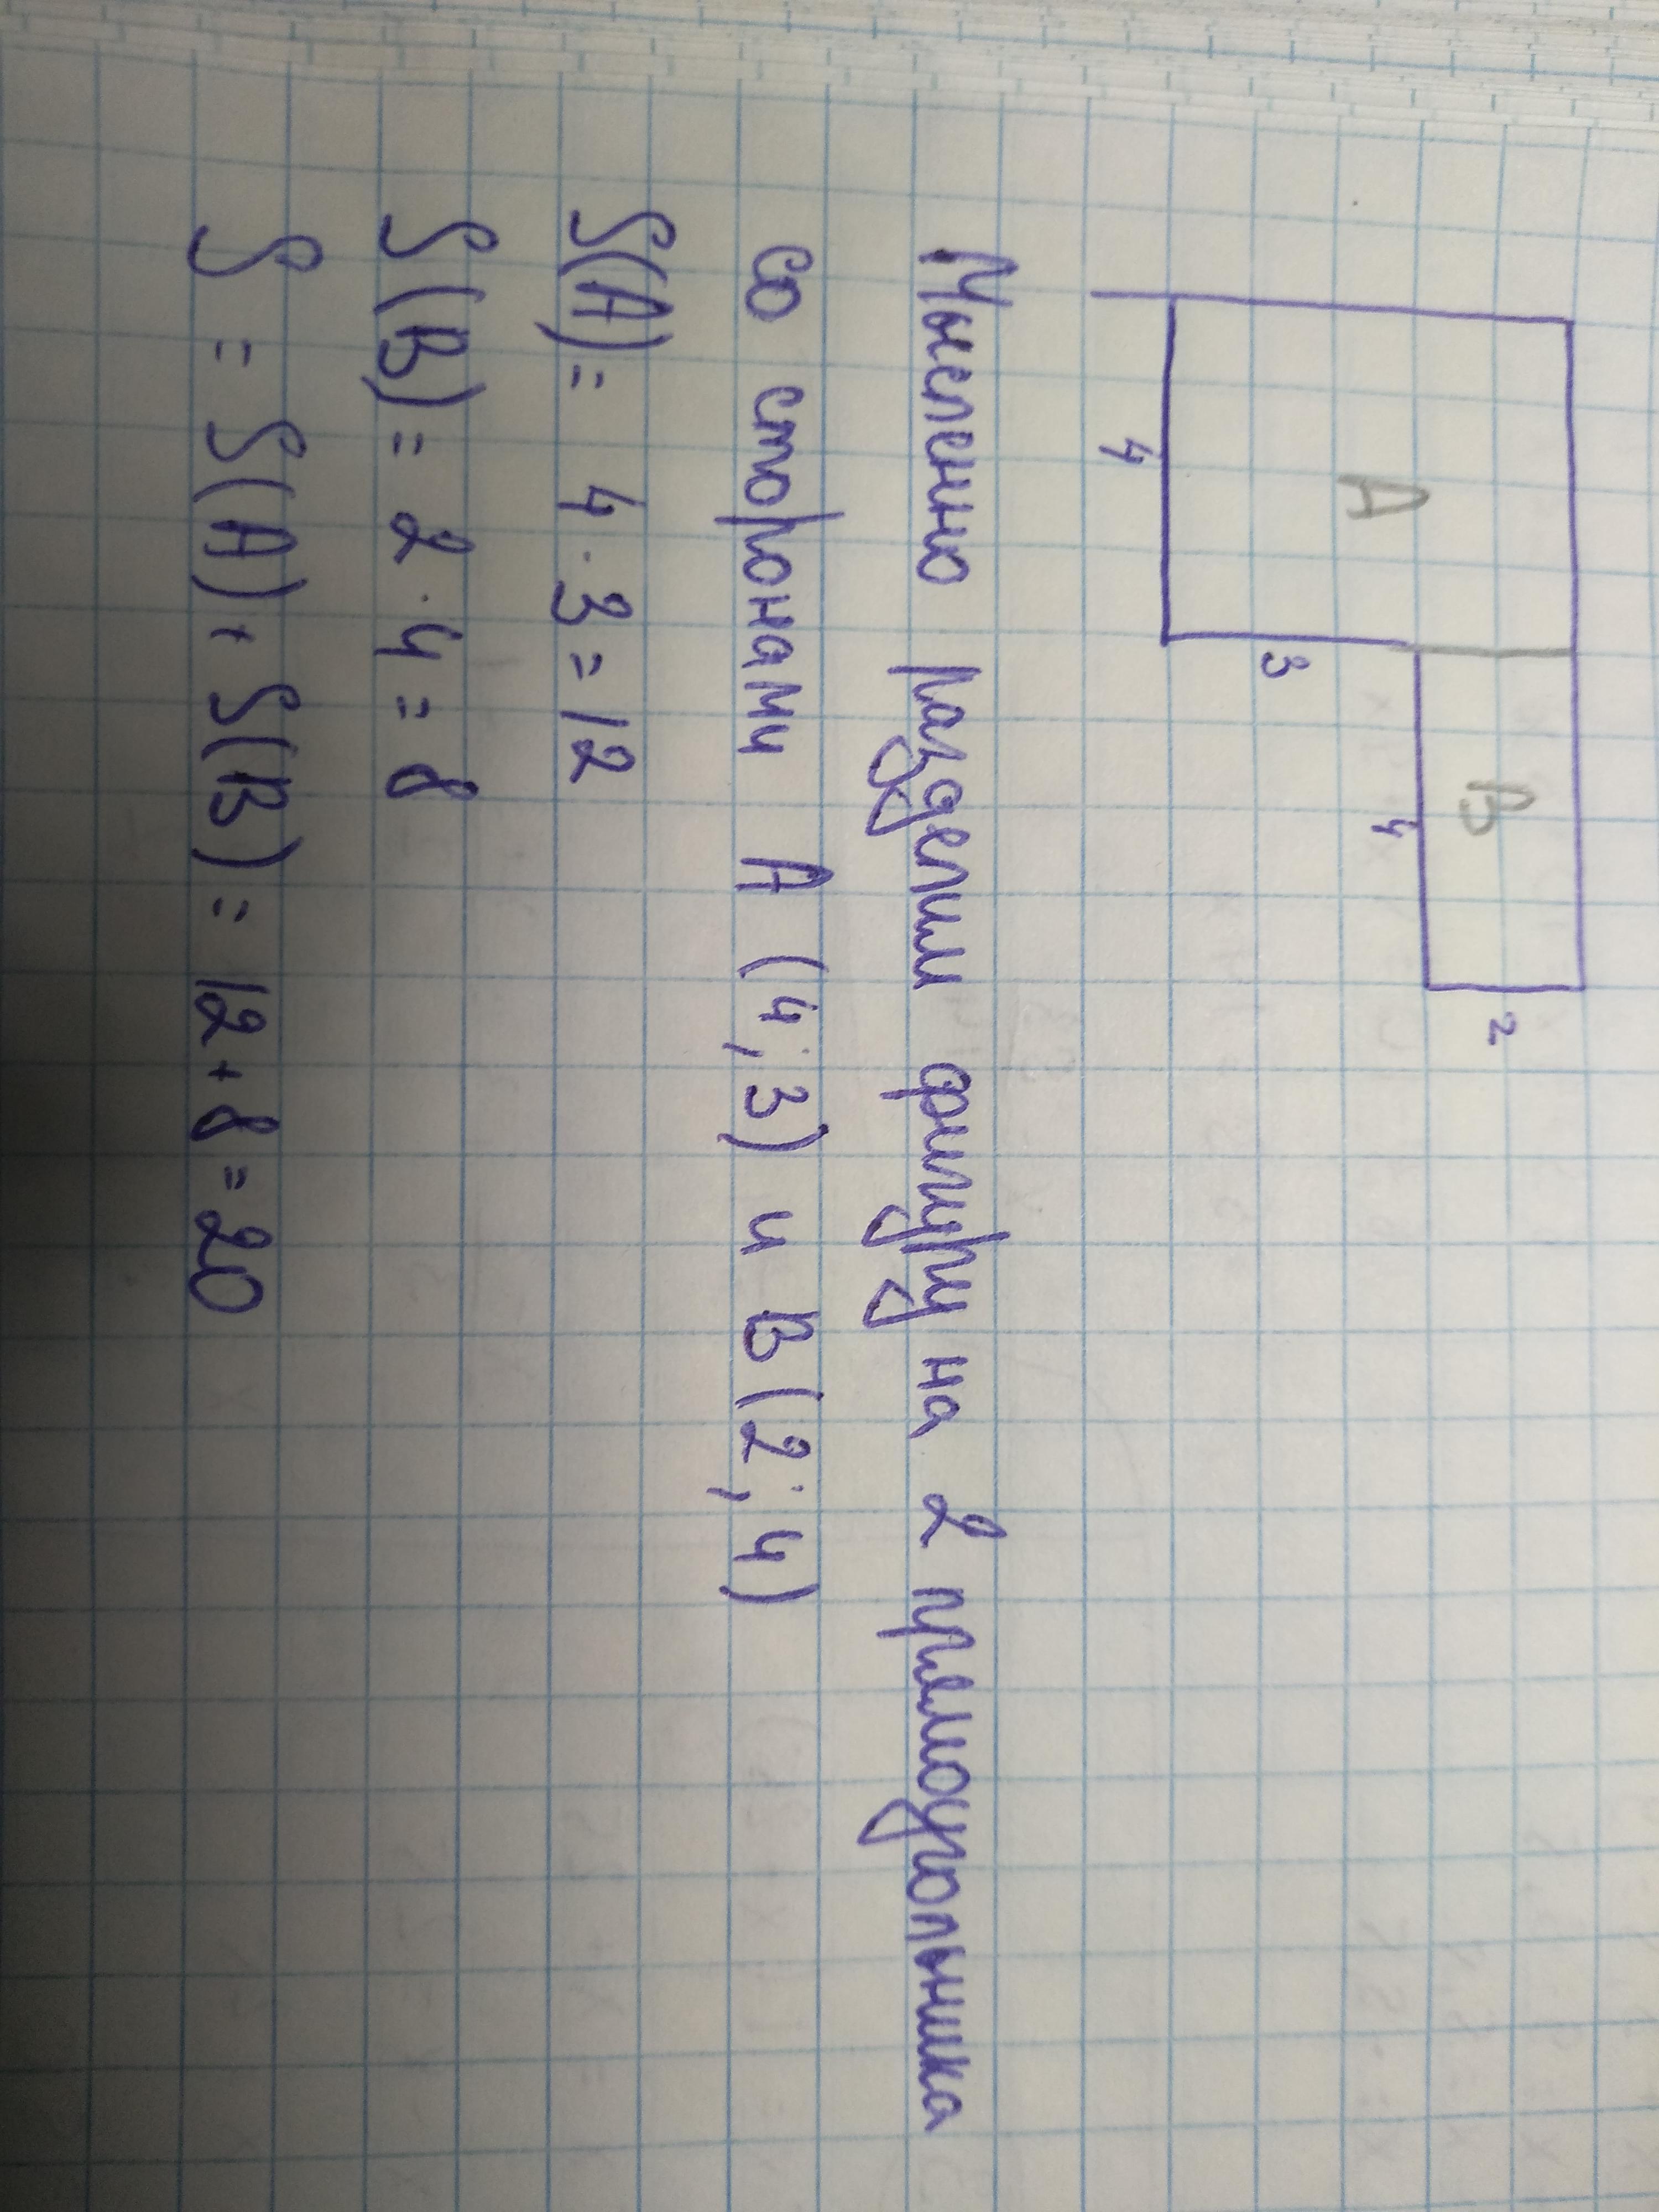 A
B
2
4
3
4
Мысленно разделим фигуру на 2 прямоугольника
со сторонами A (4; 3) и B (2; 4)
S(A) = 4 · 3 = 12
S(B) = 2 · 4 = 8
S = S(A) + S(B) = 12 + 8 = 20